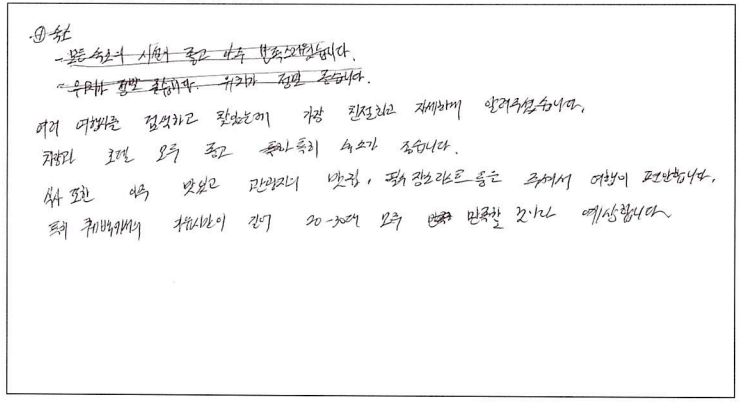 ① 숙소
- 모든 숙소의 시설이 좋고 아주 만족스러웠습니다.
- 위치가 정말 좋습니다. 위치가 정말 좋습니다.
여러 여행사를 검색하고 찾았는데 가장 친절하고 자세하게 알려주셨습니다.
차량과 호텔 모두 좋고 특히 숙소가 좋습니다.
식사 또한 아주 맛있고 관광지의 맛집, 필수장소리스트 등을 주셔서 여행이 편안합니다.
특히 퀘백에서의 자유시간이 길어 20-30대 모두 만족할 것이라 예상합니다.